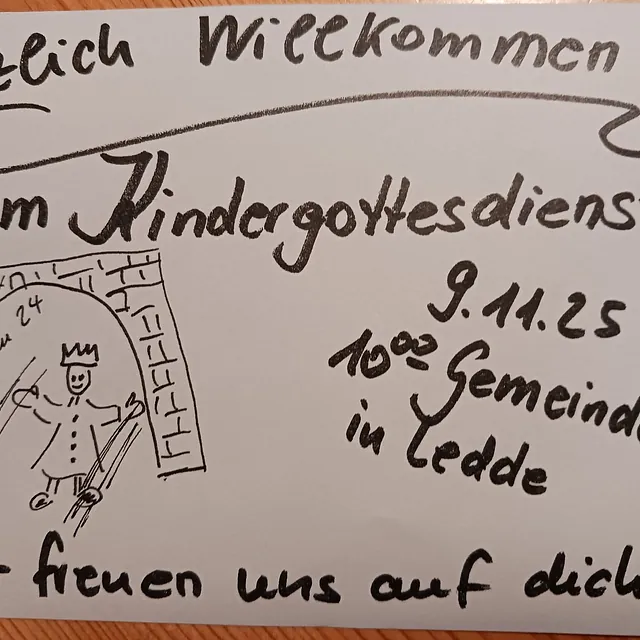 zlich Willkommen
m Kindergottesdiens
9.11.25
10⁰⁰ Gemeinde
in Ledde
24
freuen uns auf dich